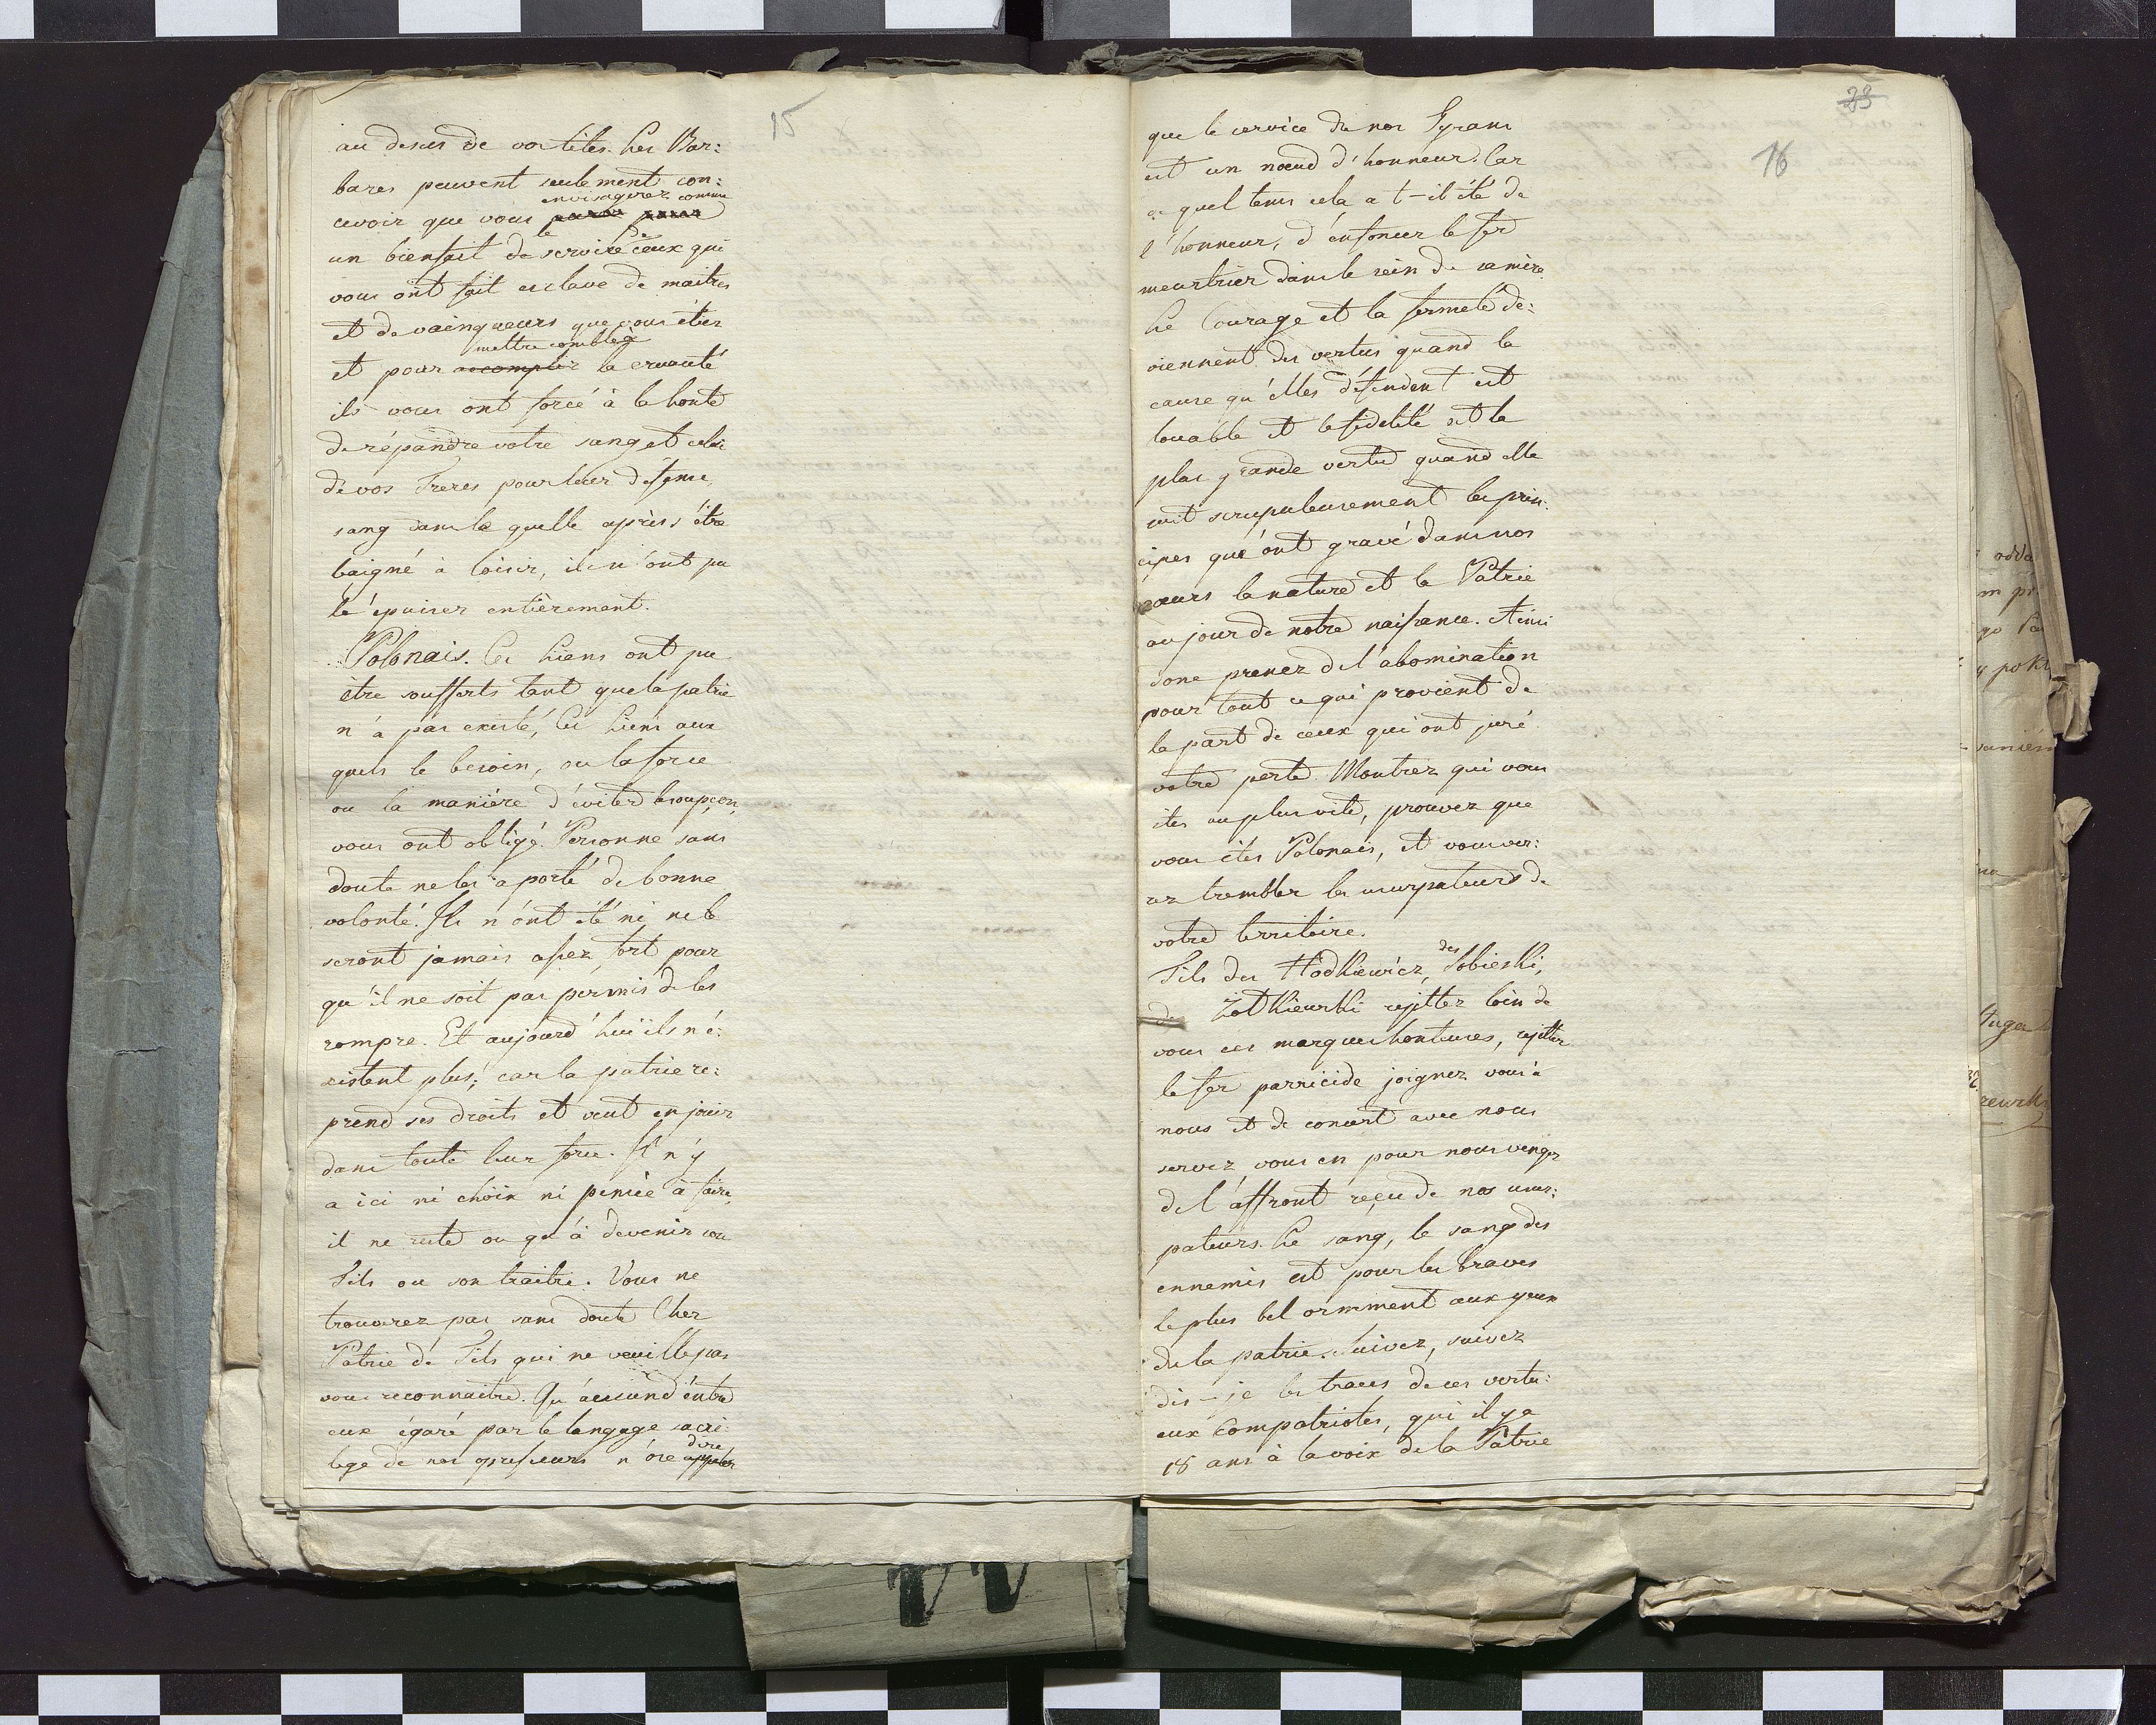 15
au desus de vos têtes. Les Bar:
bares peuvent seulement con:
envisagerez comme
cevoir que vous
un bienfait de le servire de ceux qui
vous ont fait esclave de maitres
et de vainqueurs que vous étiez
mettre comble à
et pour accomplir la cruauté
ils vous ont forcé à la honte
de répandre votre sang et celui
de vos Freres pour leur défense,
sang dans le quelle après s'être
baigné à loisir, ils n'ont pu
le épuiser entièrement.
Polonais. Ces Liens ont pu
être soufferts tant que la patrie
n'a pas existé, Ces Liens aux
quels le besoin, ou la force
ou la maniére d'éviter le soupçon,
vous ont obligé. Personne sans
doute ne les a porté de bonne
volonté. Ils n'ont été ni ne le
seront jamais assez fort pour
qu'il ne soit pas permis de les
rompre. Et aujourd'hui ils n'é:
xistent plus; car la patrie re:
prend ses droits et veut en jouir
dans toute leur force. Il n'y
a ici ni choix ni pensée à faire,
il ne reste ou qu'à devenir son
Fils ou son traitre. Vous ne
trouverez pas sans doute Cher
Patrie de Fils qui ne veuille pas
vous reconnaitre. Qu'aucun d'entre
eux égaré par le langage sacri:
dire
lege de nos opresseurs n'ose appeler
23
16
que le service de nos Tyrans
est un nœud d'honneur. Car
en quel tems cela a t-il été de
l'honneur, d'enfoncer le fer
meurtrier dans le sein de sa mère.
Le Courage et la fermeté de:
viennent des vertus quand la
cause qu'elles défendent est
louable et la fidelité est la
plus grande vertu quand elle
suit scrupuleusement les prin:
cipes que ont gravé dans nos
cœurs la nature et la Patrie
au jour de notre naissance. Ainsi
donc prenez de l'abomination
pour tout ce qui provient de
la part de ceux qui ont juré
votre perte. Montrez qui vous
êtes au plus vite, prouvez que
vous êtes Polonais, et vous ver:
rez trembler les usurpateurs de
votre territoire.
Fils des Hodkiewicz, des Sobieski,
des Żołkiewski rejettez loin de
vous ces marques honteuses, rejettez
le fer parricide joignez vous à
nous et de concert avec nous
servez vous en pour nous venger
de l'affront reçu de nos usur:
pateurs. Le sang, le sang des
ennemis est pour les braves
le plus bel orniment aux yeux
de la patrie. Suivez, suivez
dis-je les traces de ces vertu:
eux Compatriotes, qui il y a
18 ans à la voix de la Patrie